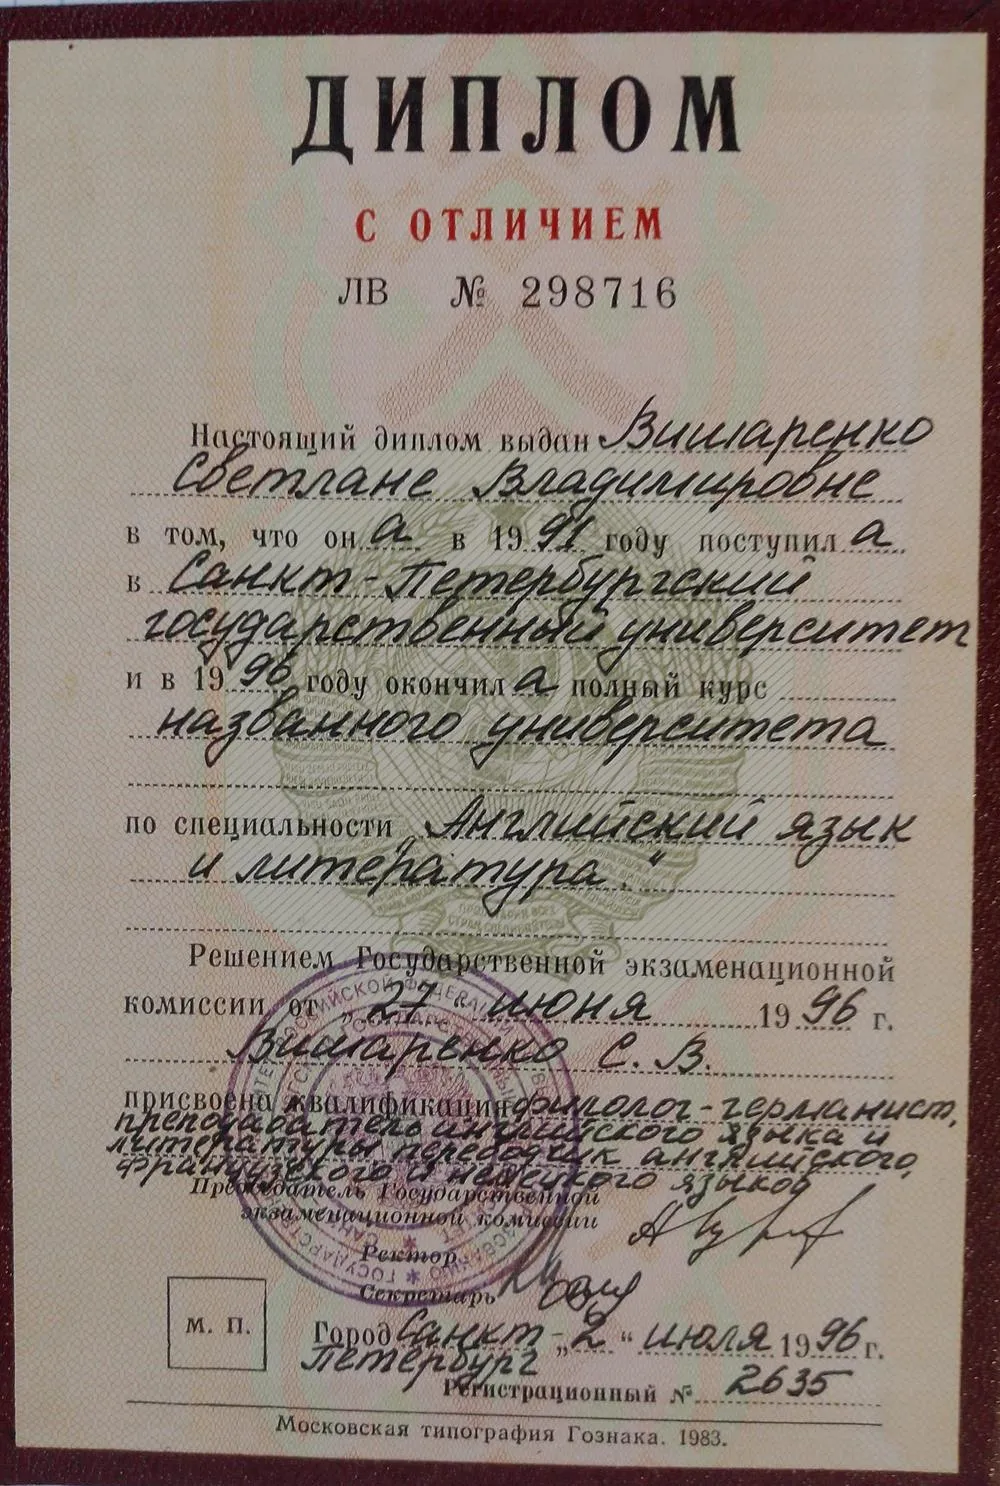 ДИПЛОМ
С ОТЛИЧИЕМ
ЛВ № 298716
Настоящий диплом выдан Вишаренко
Светлане Владимировне
в том, что он а в 1991 году поступил а
в Санкт-Петербургский
государственный университет
и в 1996 году окончил а полный курс
названного университета
по специальности „Английский язык
и литература."
Решением Государственной экзаменационной
комиссии от „27" июня 1996 г.
Вишаренко С. В.
присвоена квалификация филолог-германист,
преподаватель английского языка и
литературы переводчик английского,
французского и немецкого языков
Председатель Государственной
экзаменационной комиссии
Ректор
Секретарь
М. П.
Город Санкт- „2" июля 1996 г.
Петербург
Регистрационный № 2635
Московская типография Гознака. 1983.